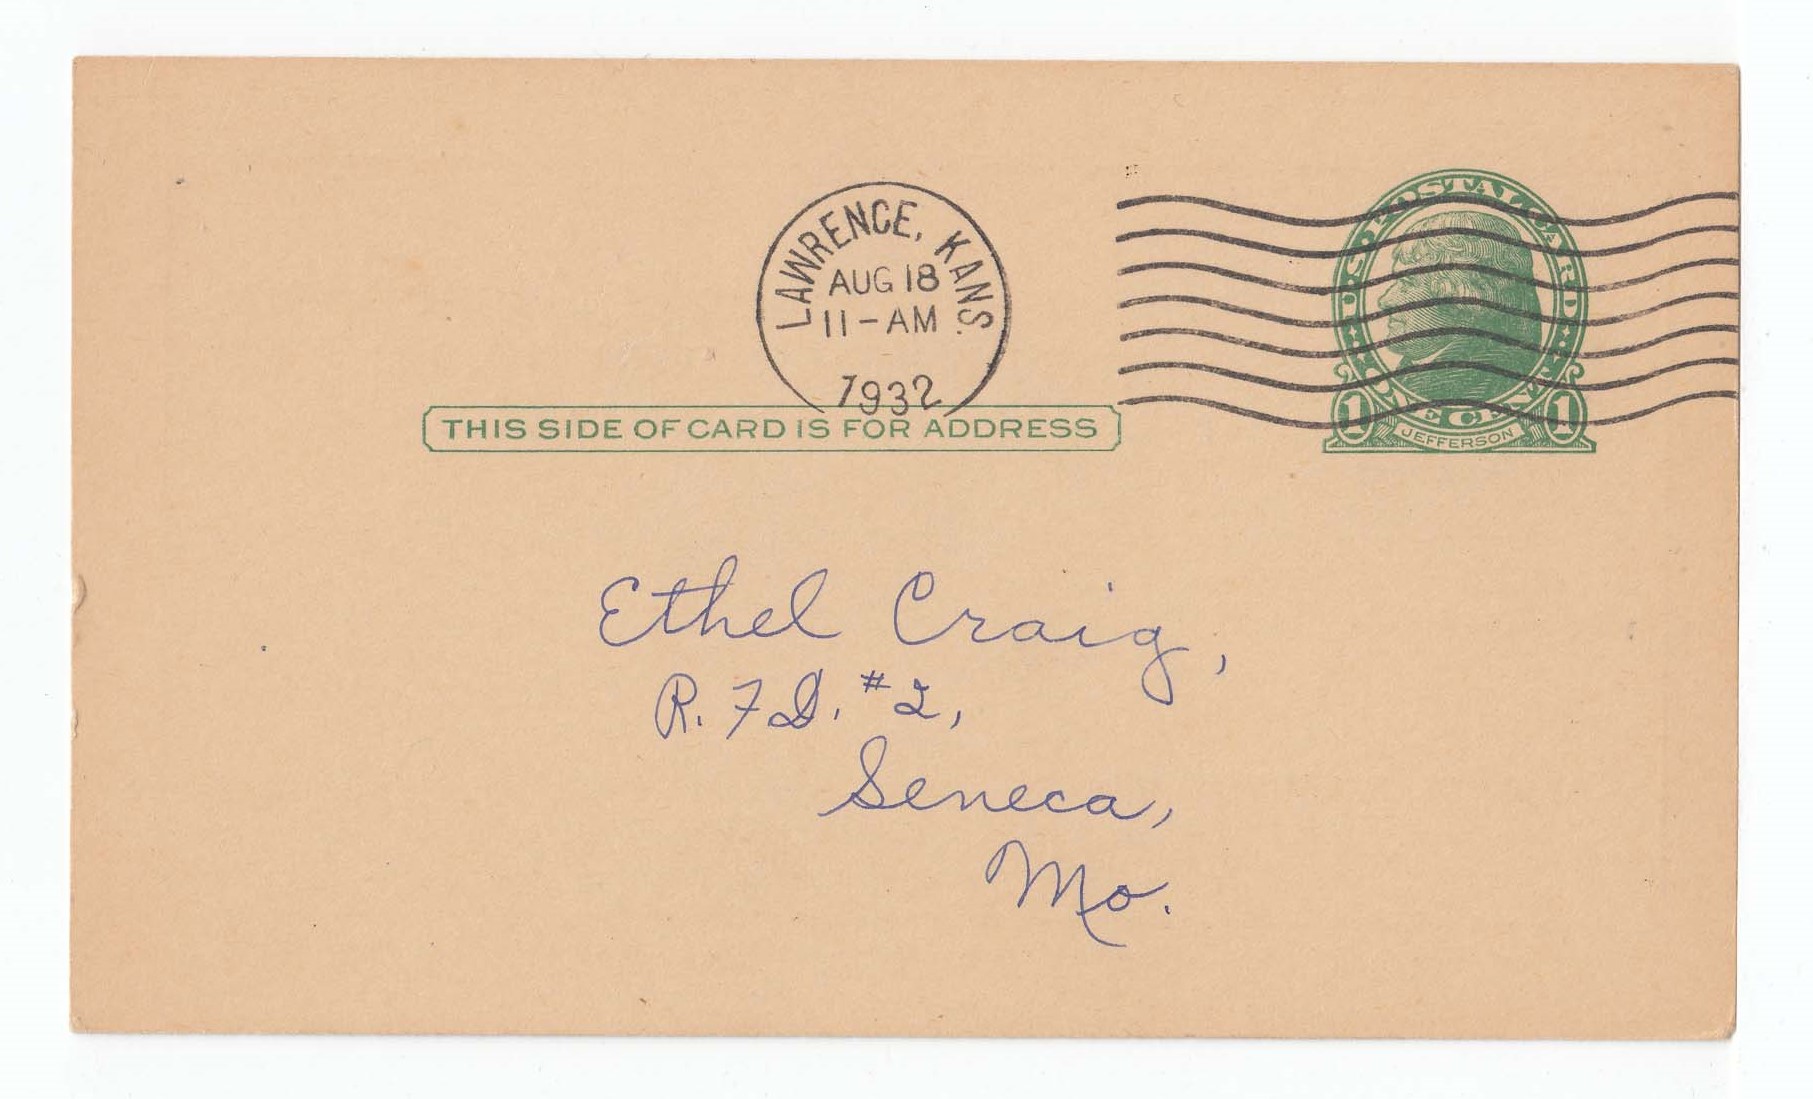 LAWRENCE, KANS.
AUG 18
11-AM
1932
U.S. POSTAL CARD
1 ONE CENT 1
JEFFERSON
THIS SIDE OF CARD IS FOR ADDRESS
Ethel Craig,
R. F D. #2,
Seneca,
Mo.